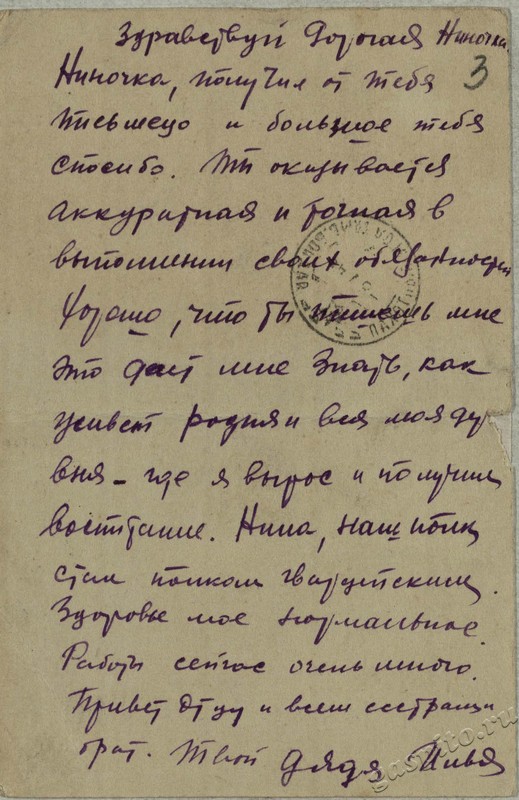 Здравствуй Дорогая Ниночка.
3
Ниночка, получил от тебя
письмецо и большое тебя
спосибо. Ты оказывается
аккуратная и точная в
выполнении своих обязанностей
Хорошо, что ты пишешь мне
это дает мне знать, как
живет родня и вся моя де
вня - где я вырос и получил
воспитание. Нина, наш полк
стал полком гвардейским.
Здоровье мое нормальное.
Работы сейчас очень много.
Привет отцу и всем сестрам и
брат. Твой дядя Илья
gaspito.ru